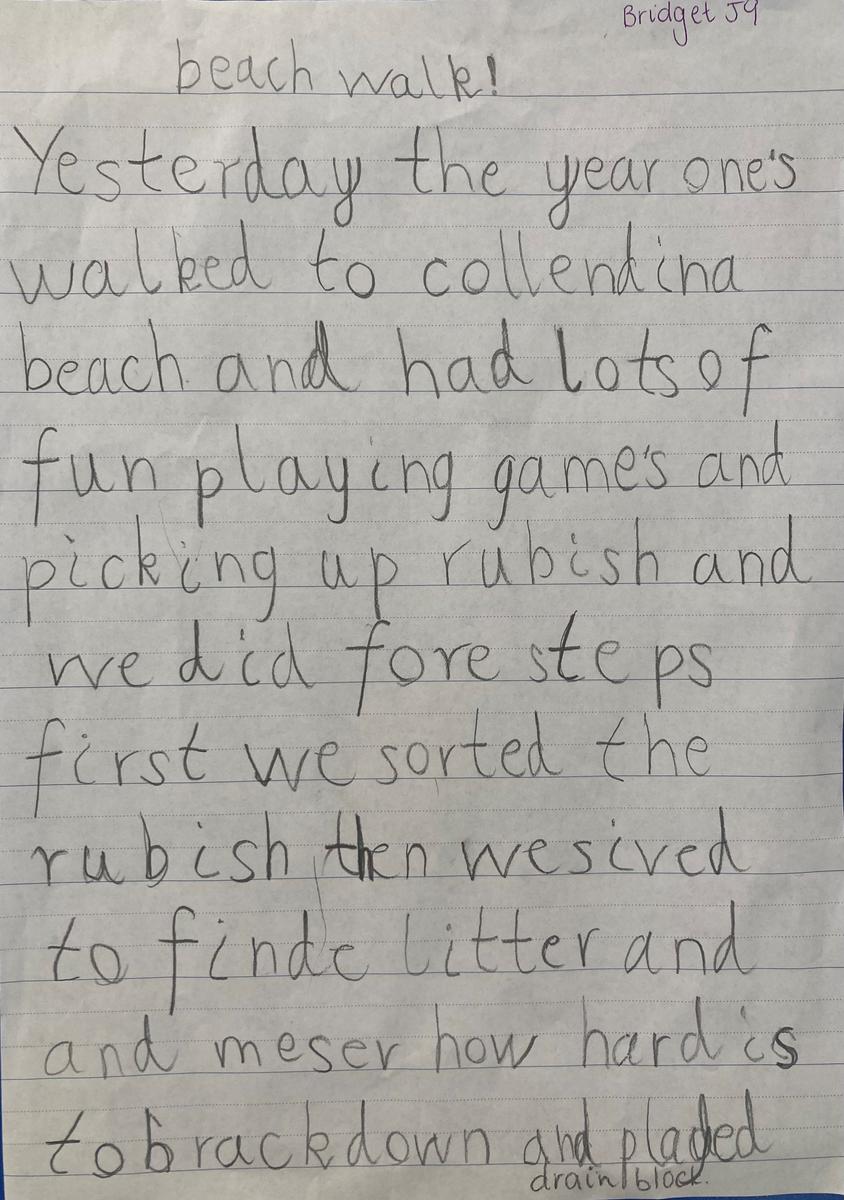 Bridget J9
beach walk!
Yesterday the year one's
walked to collendina
beach and had lots of
fun playing game's and
picking up rubish and
we did fore steps
first we sorted the
rubish then we sived
to finde litter and
and meser how hard is
to brack down and played
drain block.